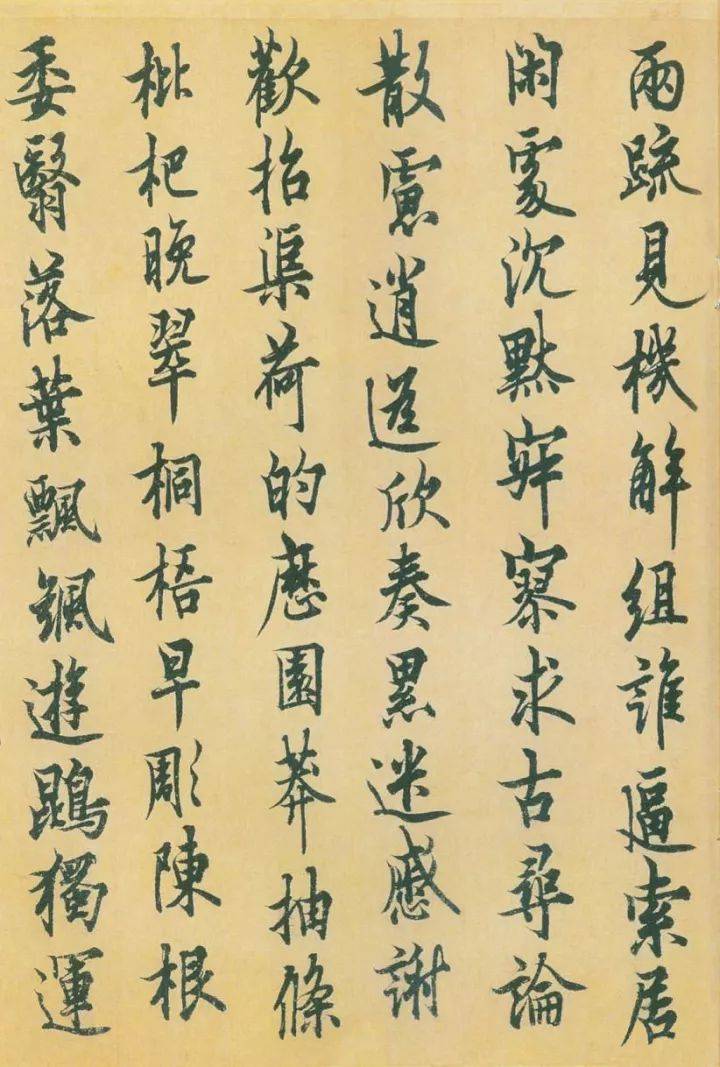 兩疏見機解組誰逼索居
閑處沉默寂寥求古尋論
散慮逍遙欣奏累迷慼謝
歡招渠荷的歷園莽抽條
枇杷晚翠桐梧早彫陳根
委翳落葉飄颻遊鵾獨運